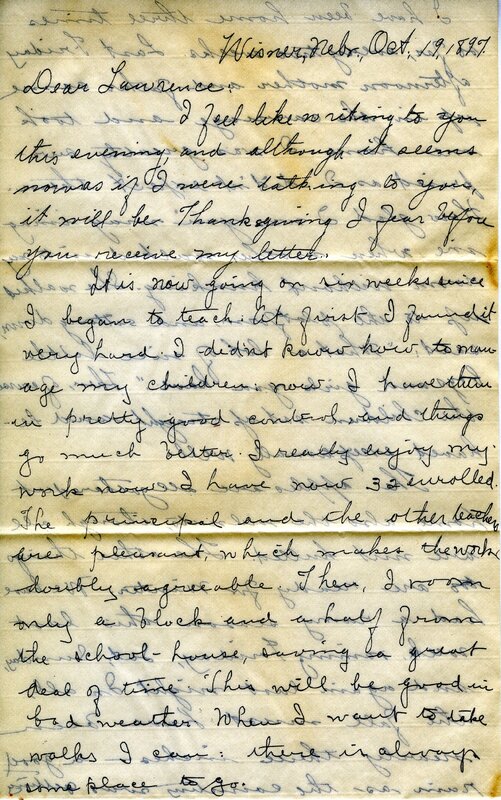 Wisner, Nebr., Oct. 19, 1897.
Dear Lawrence.
I feel like writing to you
this evening, and although it seems
now as if I were talking to you,
it will be Thanksgiving I fear before
you receive my letter.
It is now going on six weeks since
I began to teach. At first I found it
very hard. I didn't know how to man
age my "children; now I have them
in pretty good control and things
go much better. I really enjoy my
work now. I have now 32 enrolled.
The principal and the other teachers
are pleasant, which makes the work
doubly agreeable. Then, I room
only a block and a half from
the school-house, saving a great
deal of time. This will be good in
bad weather. When I want to take
walks I can: there is always
some place to go.